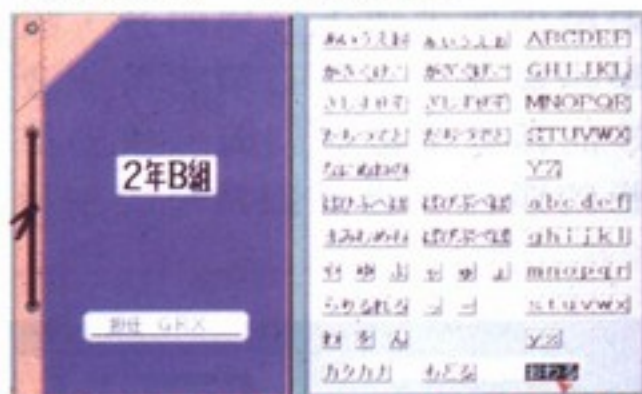 2年B組
担任 GEX
あいうえお ぁぃぅぇぉ ABCDEF
かきくけこ がぎぐげご GHIJKL
さしすせそ ざじずぜぞ MNOPQR
たちつてと だぢづでど STUVWX
なにぬねの YZ
はひふへほ ばびぶべぼ abcdef
まみむめも ぱぴぷぺぽ ghijkl
や ゆ よ ゃ ゅ ょ mnopqr
らりるれろ っ ー stuvwx
わ を ん yz
カタカナ もどる おわる